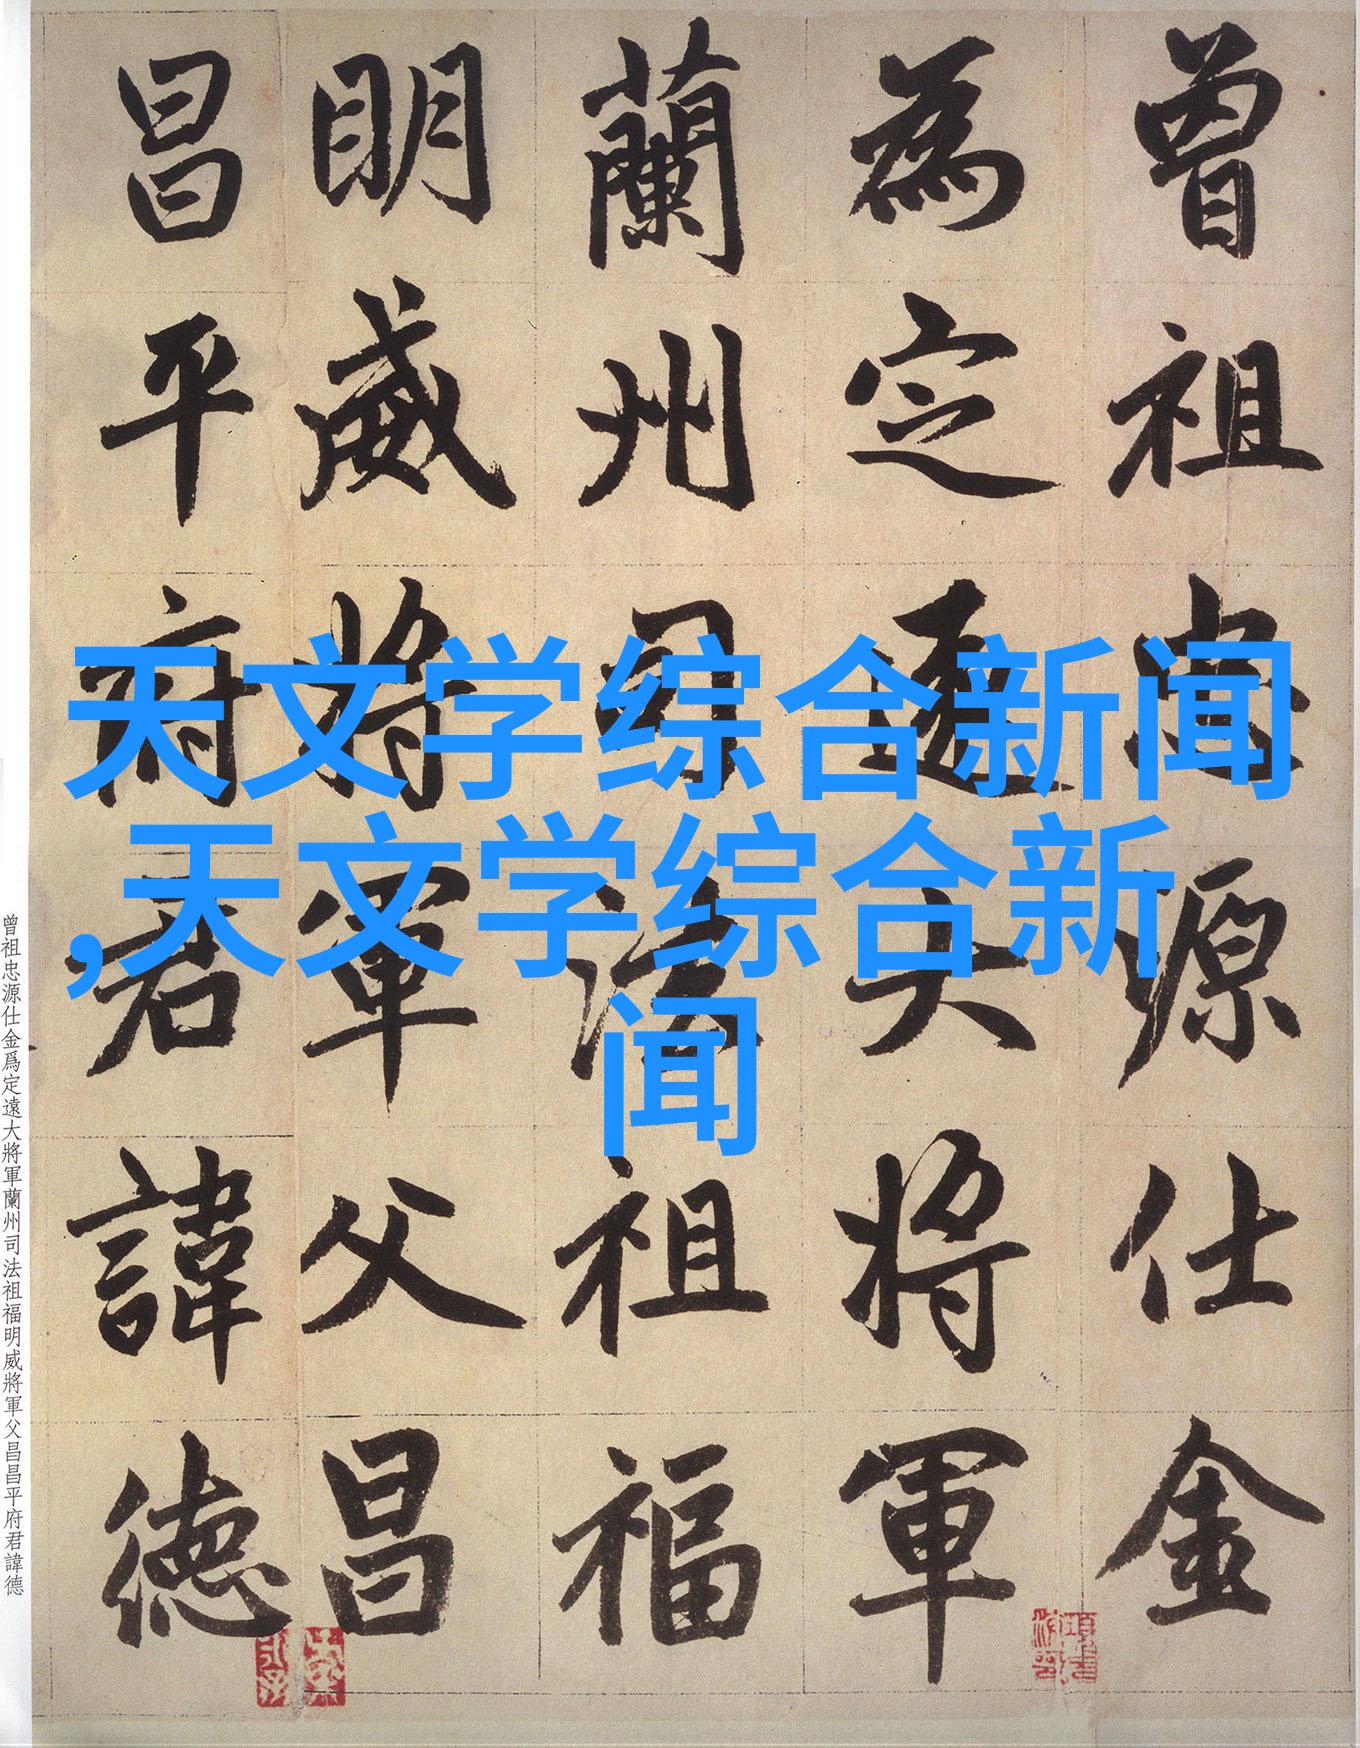 曾祖忠源仕金
為定遠大將軍
蘭州司法祖福
明威將軍父昌
昌平府君諱德
天文学综合新闻
,天文学综合新
闻
曾祖忠源仕金爲定遠大將軍蘭州司法祖福明威將軍父昌昌平府君諱德